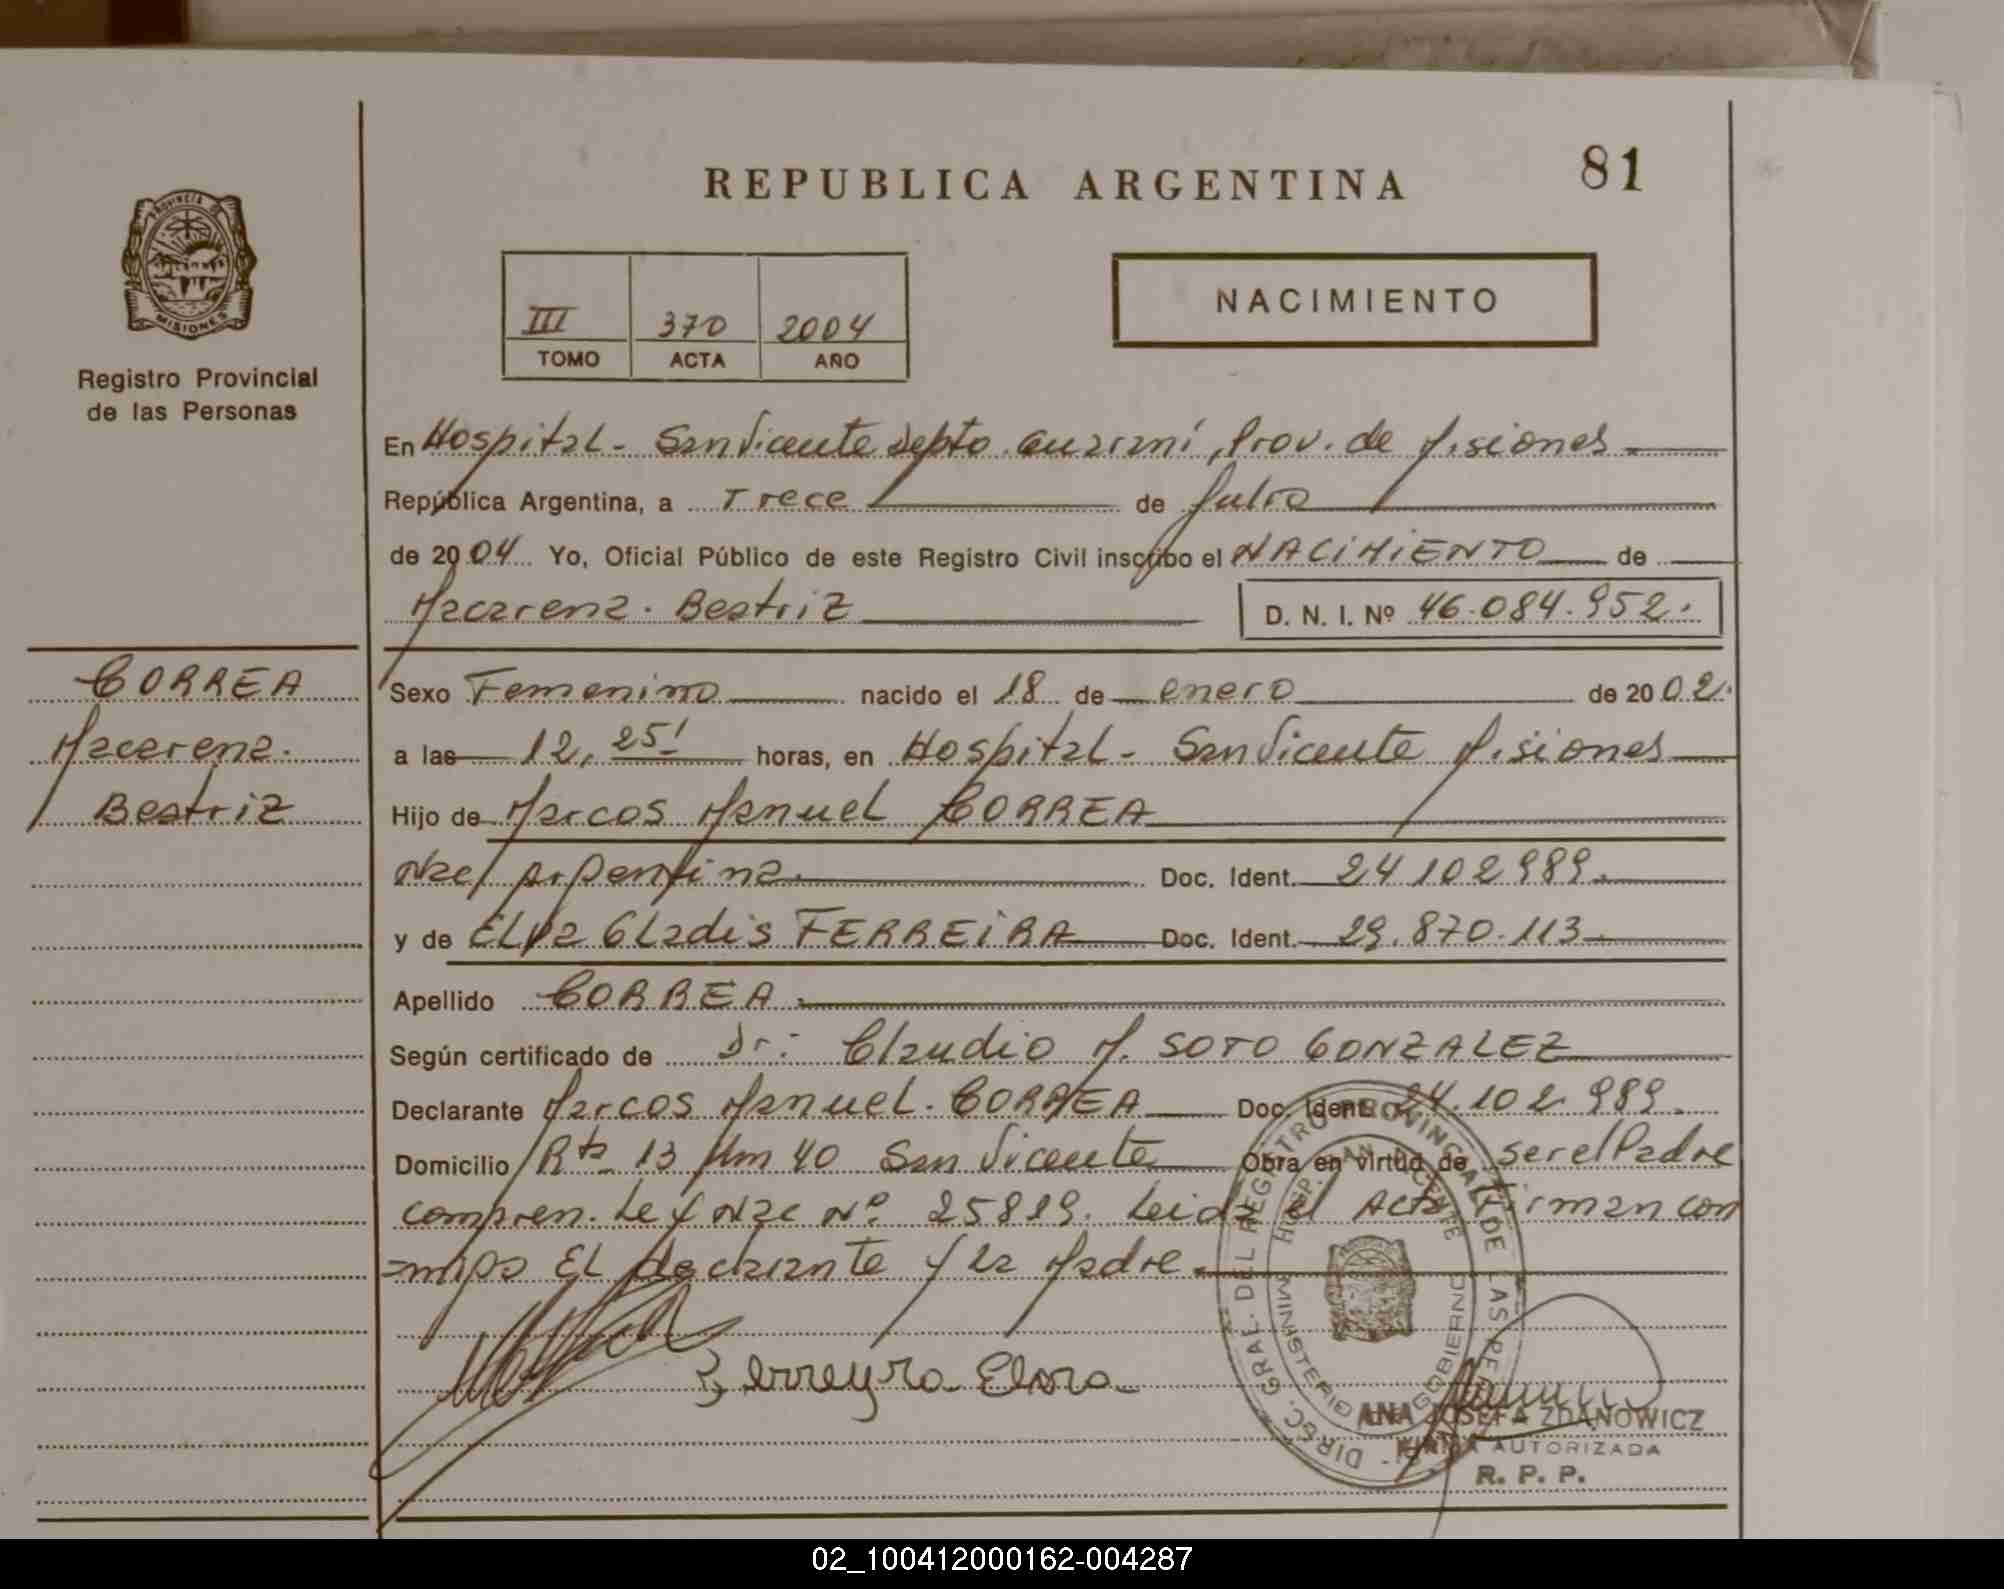 PROVINCIA DE
MISIONES
Registro Provincial
de las Personas
CORREA
Macarena.
Beatriz
REPUBLICA ARGENTINA
81
III 370 2004
TOMO ACTA AÑO
NACIMIENTO
En Hospital - San Vicente Depto. Guaraní, Prov. de Misiones
República Argentina, a Trece de Julio
de 2004 Yo, Oficial Público de este Registro Civil inscribo el NACIMIENTO de
Macarena. Beatriz D. N. I. Nº 46.084.952.
Sexo Femenino nacido el 18 de enero de 2002.
a las 12,25' horas, en Hospital - San Vicente Misiones
Hijo de Marcos Manuel CORREA
Nac/ Argentina. Doc. Ident. 24.102.989.
y de Elva Gladis FERREIRA Doc. Ident. 29.870.113
Apellido CORREA.
Según certificado de Dr: Claudio M. SOTO GONZALEZ
Declarante Marcos Manuel. CORREA Doc. Ident. 24.102.989.
Domicilio Rta 13 Km 40 San Vicente Obra en virtud de ser el Padre
compren. Ley Nac Nº 25819. Leida el Acta Firman con
=migo El declarante y la Madre.
Ferreyra Elva
DIREC. GRAL. DEL REGISTRO PROVINCIAL DE LAS PER
HOSP. SAN VICENTE
MINISTERIO GOBIERNO
ANA JOSEFA ZDANOWICZ
FIRMA AUTORIZADA
R. P. P.
02_100412000162-004287